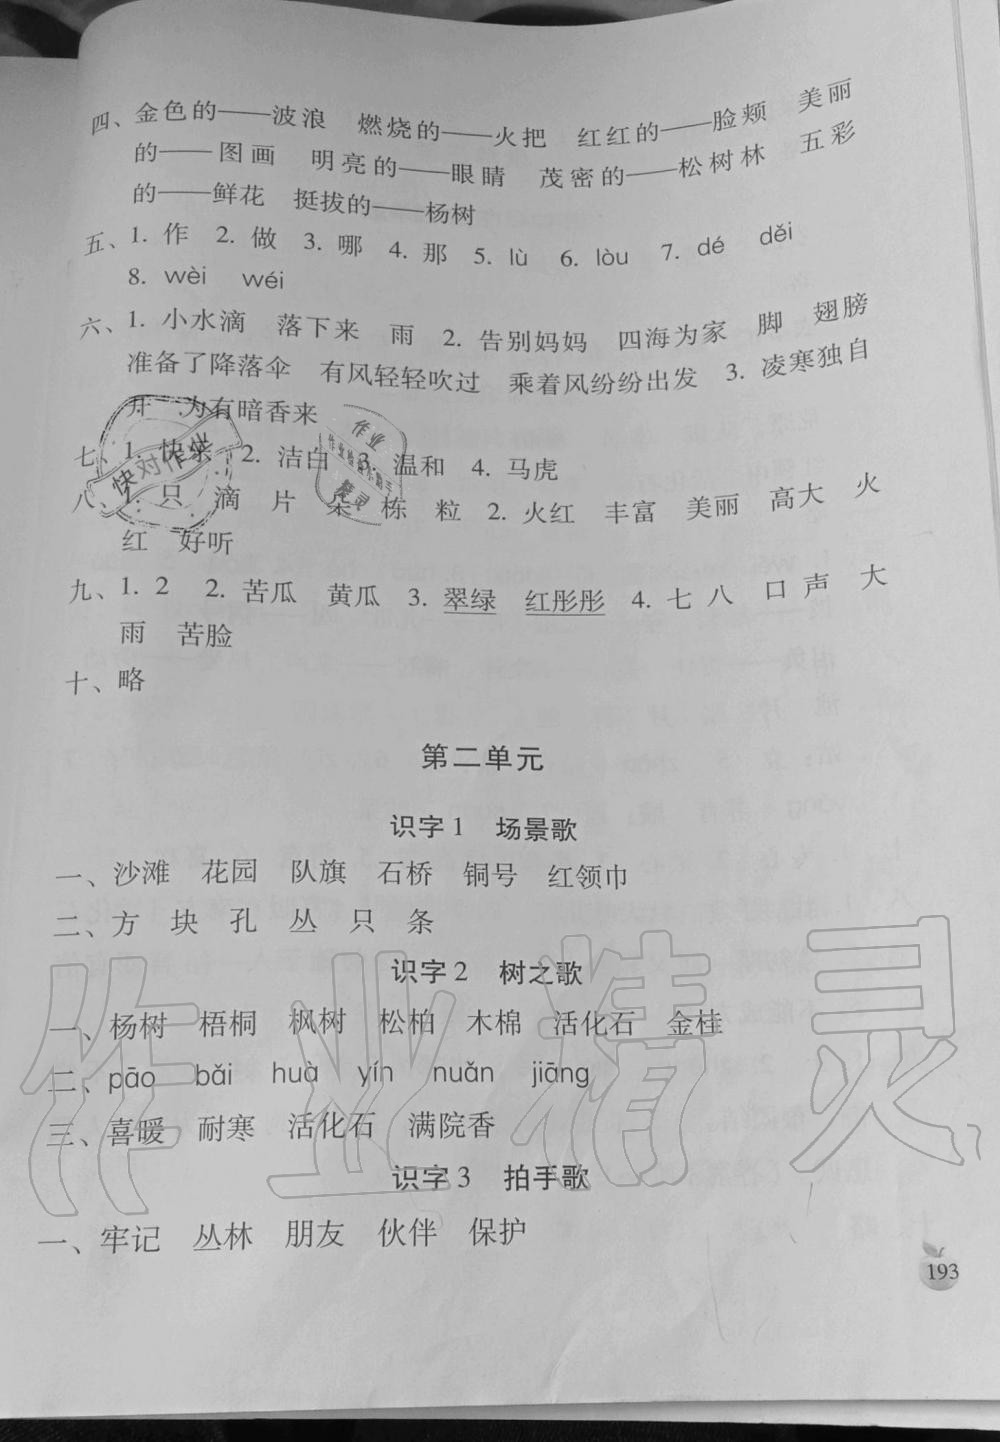 四、金色的——波浪 燃烧的——火把 红红的——脸颊 美丽
的——图画 明亮的——眼睛 茂密的——松树林 五彩
的——鲜花 挺拔的——杨树
五、1. 作 2. 做 3. 哪 4. 那 5. lù 6. lòu 7. dé děi
8. wèi wéi
六、1. 小水滴 落下来 雨 2. 告别妈妈 四海为家 脚 翅膀
准备了降落伞 有风轻轻吹过 乘着风纷纷出发 3. 凌寒独自
开 为有暗香来
七、1. 快乐 2. 洁白 3. 温和 4. 马虎
八、1. 只 滴 片 朵 栋 粒 2. 火红 丰富 美丽 高大 火
红 好听
九、1. 2 2. 苦瓜 黄瓜 3. 翠绿 红彤彤 4. 七 八 口 声 大
雨 苦脸
十、略
第二单元
识字1 场景歌
一、沙滩 花园 队旗 石桥 铜号 红领巾
二、方 块 孔 丛 只 条
识字2 树之歌
一、杨树 梧桐 枫树 松柏 木棉 活化石 金桂
二、pāo bǎi huà yín nuǎn jiāng
三、喜暖 耐寒 活化石 满院香
识字3 拍手歌
一、牢记 丛林 朋友 伙伴 保护
193
快对作业
作业精灵